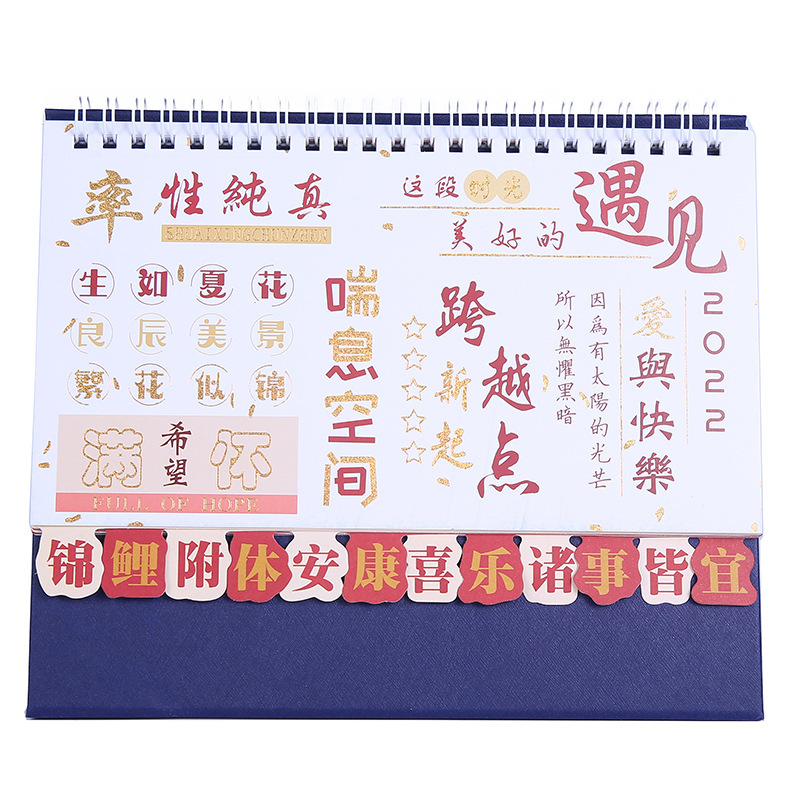 率性純真
SHUAIXINGCHUNZHEN
生如夏花
良辰美景
繁花似锦
满怀
希望
FULL OF HOPE
喘息空间
这段时光
美好的
遇见
跨越点
新起
2022
愛與快樂
因為有太陽的光芒
所以無懼黑暗
锦鲤附体安康喜乐诸事皆宜